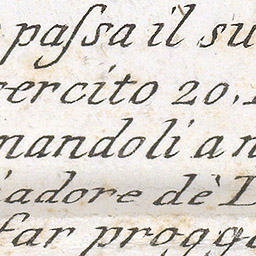 paſsa il su
ercito 20.
mandoli an
iadore dè
far progg